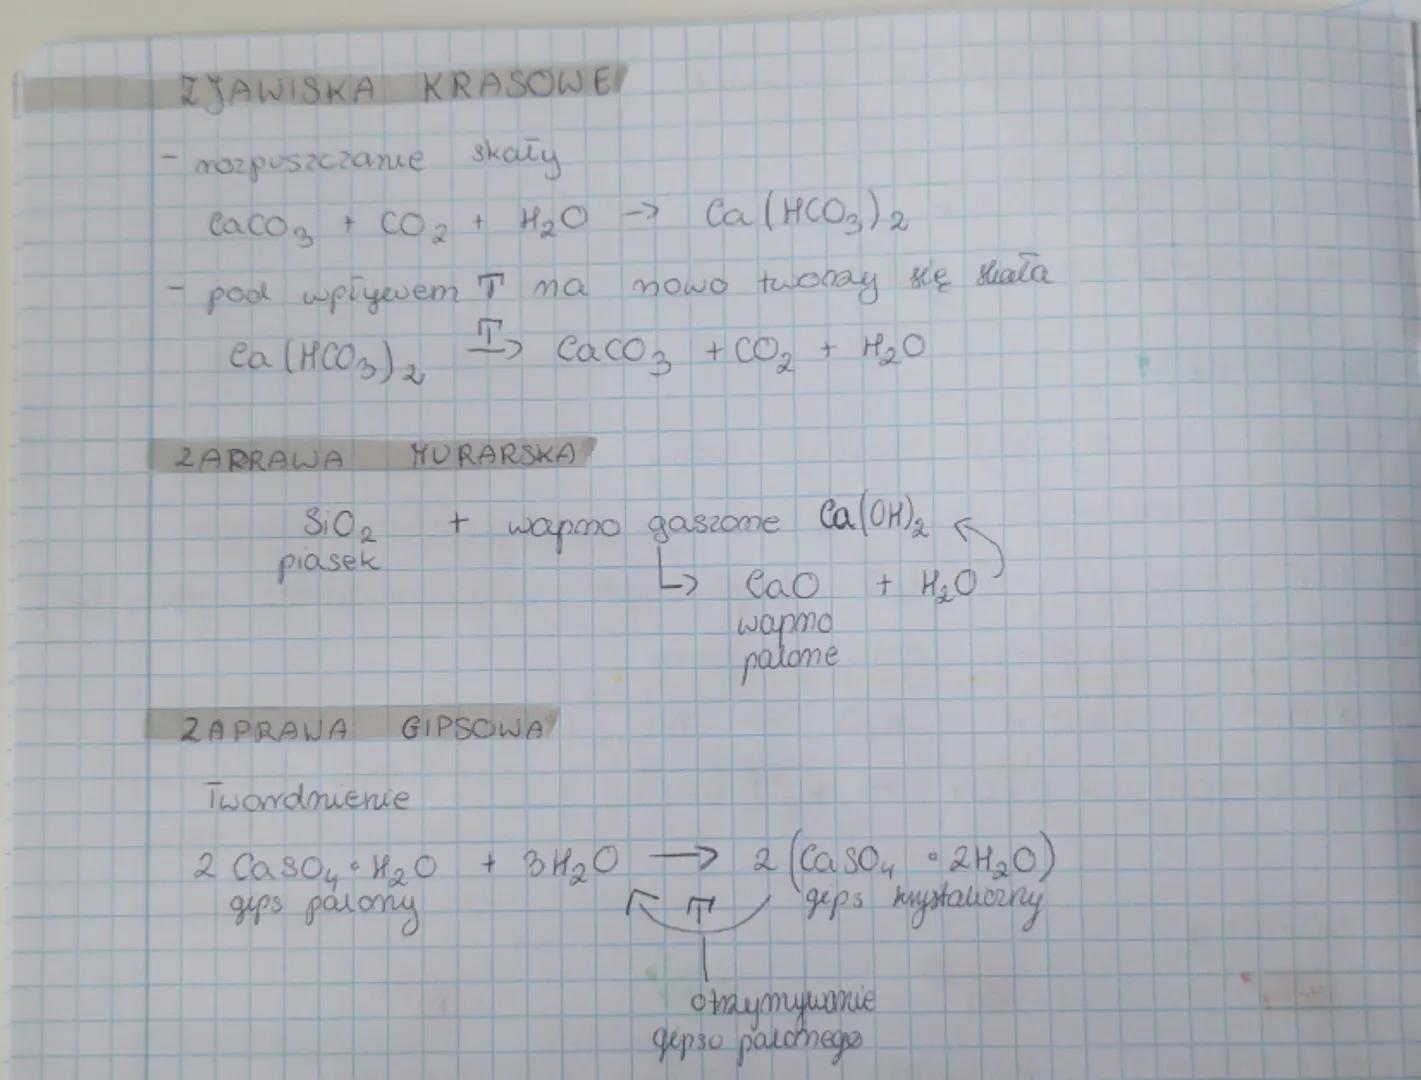 ZJAWISKA KRASOWE
- rozpuszczanie skały
CaCO3 + CO2 + H2O -> Ca(HCO3)2
- pod wpływem T na nowo tworzy się skała
Ca(HCO3)2 T-> CaCO3 + CO2 + H2O
ZAPRAWA MURARSKA
SiO2 + wapno gaszone Ca(OH)2
piasek
CaO + H2O
wapno
palone
ZAPRAWA GIPSOWA
Twardnienie
2 CaSO4 • H2O + 3H2O -> 2 (CaSO4 • 2H2O)
gips palony gips krystaliczny
T
otrzymywanie
gipsu palonego